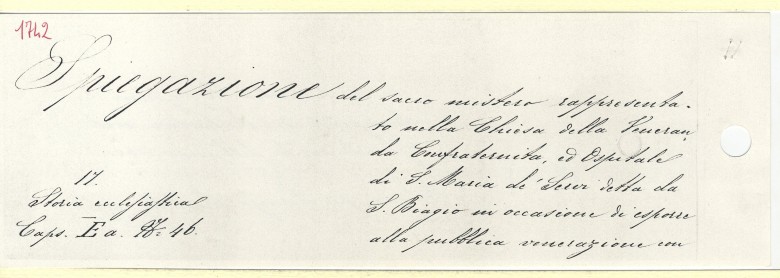 1742
Spiegazione del sacro mistero rappresenta-
to nella Chiesa della Veneran
da Confraternita, ed Ospitale
di S. Maria de' Servi detta da
S. Biagio in occasione di esporre
alla pubblica venerazione con
17.
Storia eclesiastica
Caps. E a. 46.